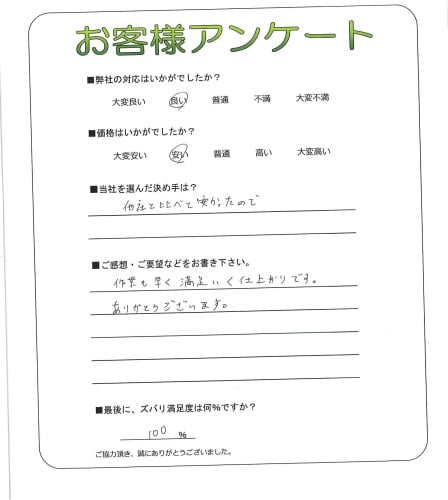 お客様アンケート
■弊社の対応はいかがでしたか?
大変良い 良い 普通 不満 大変不満
■価格はいかがでしたか?
大変安い 安い 普通 高い 大変高い
■当社を選んだ決め手は?
他社と比べて安かったので
■ご感想・ご要望などをお書き下さい。
作業も早く満足いく仕上がりです。
ありがとうございます。
■最後に、ズバリ満足度は何%ですか?
100 %
ご協力頂き、誠にありがとうございました。